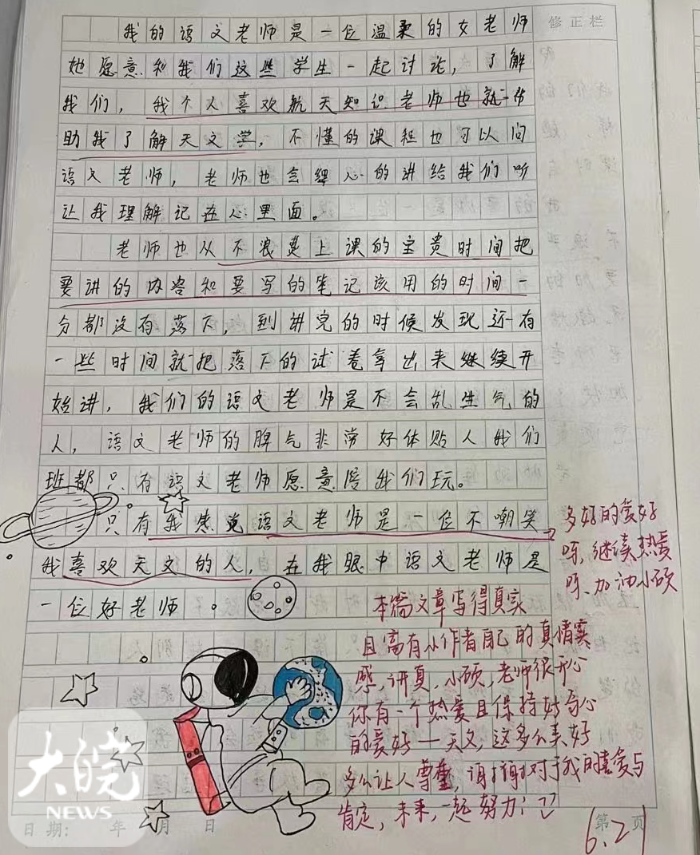 修正栏
我的语文老师是一位温柔的女老师
她愿意和我们这些学生一起讨论，了解
我们，我个人喜欢航天知识老师也就一
助我了解天文学，不懂的课程也可以问
语文老师，老师也会细心的讲给我们听
让我理解记在心里面。
老师也从不浪费上课的宝贵时间把
要讲的内容和要写的笔记该用的时间一
分都没有落下，到讲完的时候发现还有
一些时间就把落下的试卷拿出来继续开
始讲，我们的语文老师是不会乱生气的
人，语文老师的脾气非常好体贴人我们
班都只有语文老师愿意陪我们玩。
只有我感觉语文老师是一位不嘲笑
我喜欢天文的人，在我眼中语文老师是
一位好老师。
多好的爱好
呀，继续热爱
呀、加油小硕
本篇文章写得真实
且富有小作者自己的真情实
感，讲真，小硕，老师很开心
你有一个热爱且保持好奇心
的爱好——天文，这多么美好
多么让人尊重，谢谢对于我的喜爱与
肯定，未来，一起努力！
6.21
大皖
NEWS
日期： 年 月 日
第 页